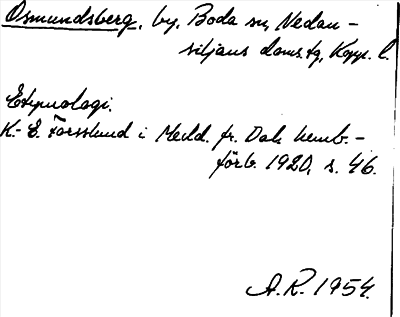 Osmundsberg, by, Boda sn, Nedan-
siljans doms.tg, Kopp. l.
Etymologi.
K.-E. Forsslund i Medd. fr. Dal. hemb.-
förb. 1920, s. 46.
A.R. 1954.